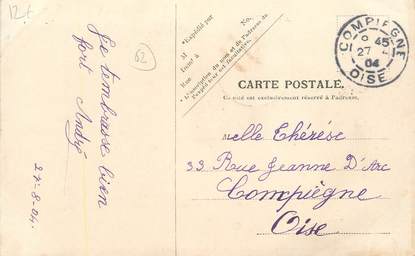 12€
Je t'embrasse bien
fort André
27-8-04.
62
Expédié par
M
Rue
No.
L'inscription du nom et de l'adresse de
l'expéditeur est facultative.
COMPIEGNE
9 45
27
04
OISE
CARTE POSTALE.
Ce côté est exclusivement réservé à l'adresse.
Melle Thérèse
33 Rue Jeanne D'Arc
Compiègne
Oise